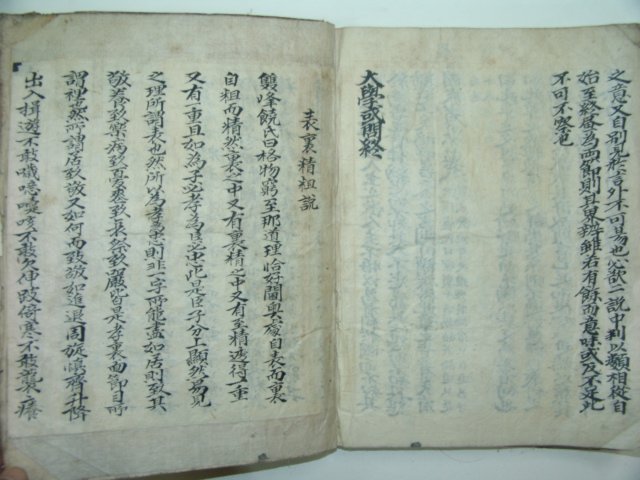 之意又自別見於言外不可易也必欲二說中判以類相從自
始至終畫爲兩節則其界辨雖若有餘而意味或反不足此
不可不察也
大學或問終
表裏精粗說
雙峰饒氏曰格物窮至那道理恰好閫奧處自表而裏
自粗而精然裏之中又有裏精之中又有至精透得一重
又有一重且如為子必孝為臣必忠此是臣子分上顯然易見
之理所謂表也然所以為孝為忠則非一字所能盡如居則致其
敬養致樂病致憂喪致哀祭致嚴皆是孝裏面節目所
謂裏也然所謂居致敬又如何而致敬如進退周旋愼齊升降
出入揖遜不敢噦噫嚏咳不敢欠伸跛倚寒不敢襲癢